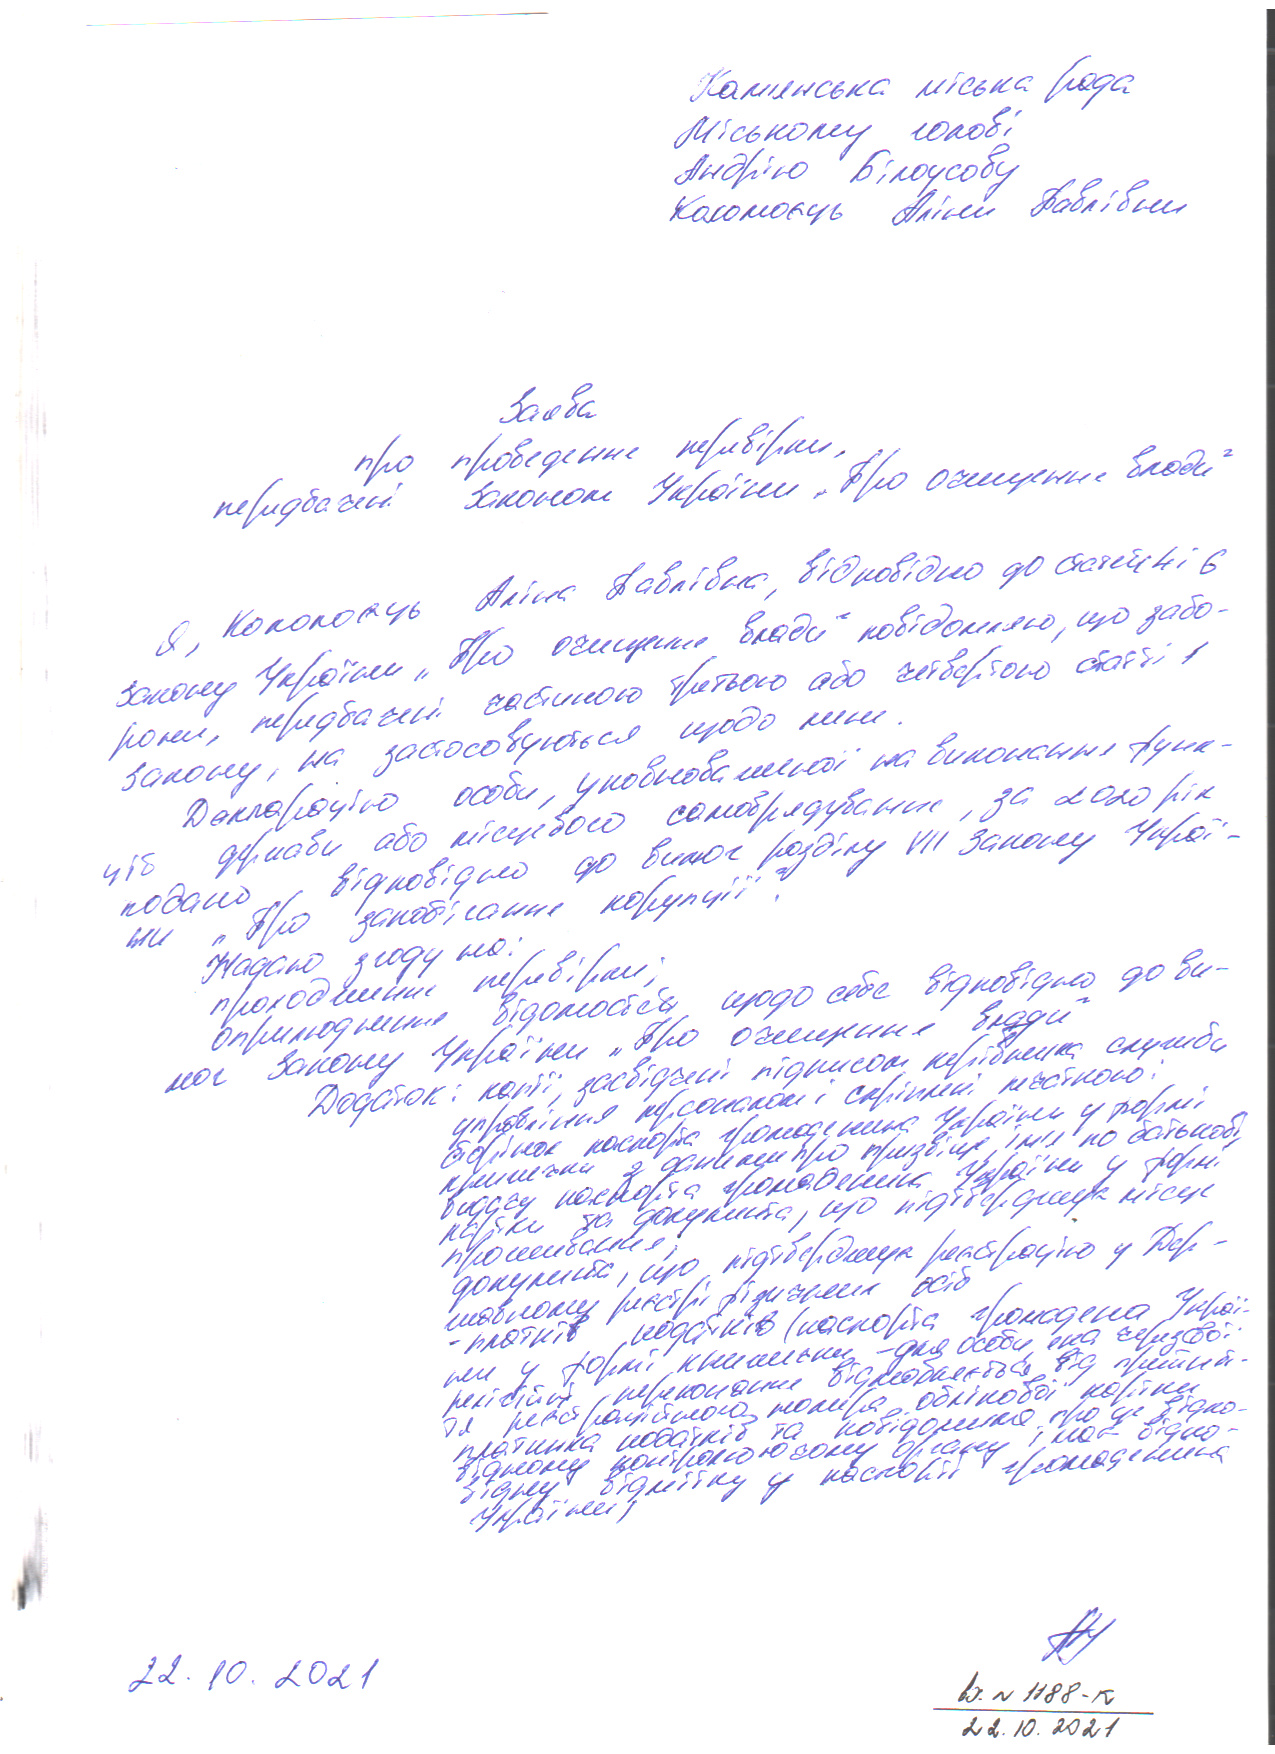 Камянська міська рада
Міському голові
Андрію Білоусову
Коломоєць Аліни Павлівни
Заява
про проведення перевірки,
передбаченї Законом України „Про очищення влади"
Я, Коломоєць Аліна Павлівна, відповідно до статей 4 і 6
Закону України „Про очищення влади" повідомляю, що забо-
рони, передбачені частиною третьою або четвертою статті 1
Закону, на застосовуються щодо мене.
Декларацію особи, уповноваженої на виконання функ-
цій держави або місцевого самоврядування, за 2020 рік
подано відповідно до вимог розділу VII Закону Украї-
ни „Про запобігання корупції".
Надаю згоду на:
проходження перевірки;
оприлюднення відомостей щодо себе відповідно до ви-
мог Закону України „Про очищення влади"
Додаток: копії, засвідчені підписом керівника служби
управління персоналом і скріплені печаткою:
сторінок паспорта громадянина України у формі
книжечки з даними про прізвище, ім'я по батькові,
видачу паспорта громадянина України у формі
картки та документа, що підтверджує місце
проживання;
документа, що підтверджує реєстрацію у Дер-
жавному реєстрі фізичних осіб
- платнків податків (паспорта громадена Украї-
ни у формі книжечки - для особи, яка через свої
релігійні переконання відмовляється від прийнят-
тя реєстраційного номера облікової картки
платника податків та повідомила про це відпо-
відному контролюючому органу і має відпо-
відну відмітку у паспорті громадянина
України)
22.10.2021
вх. № 1188-К
22.10.2021